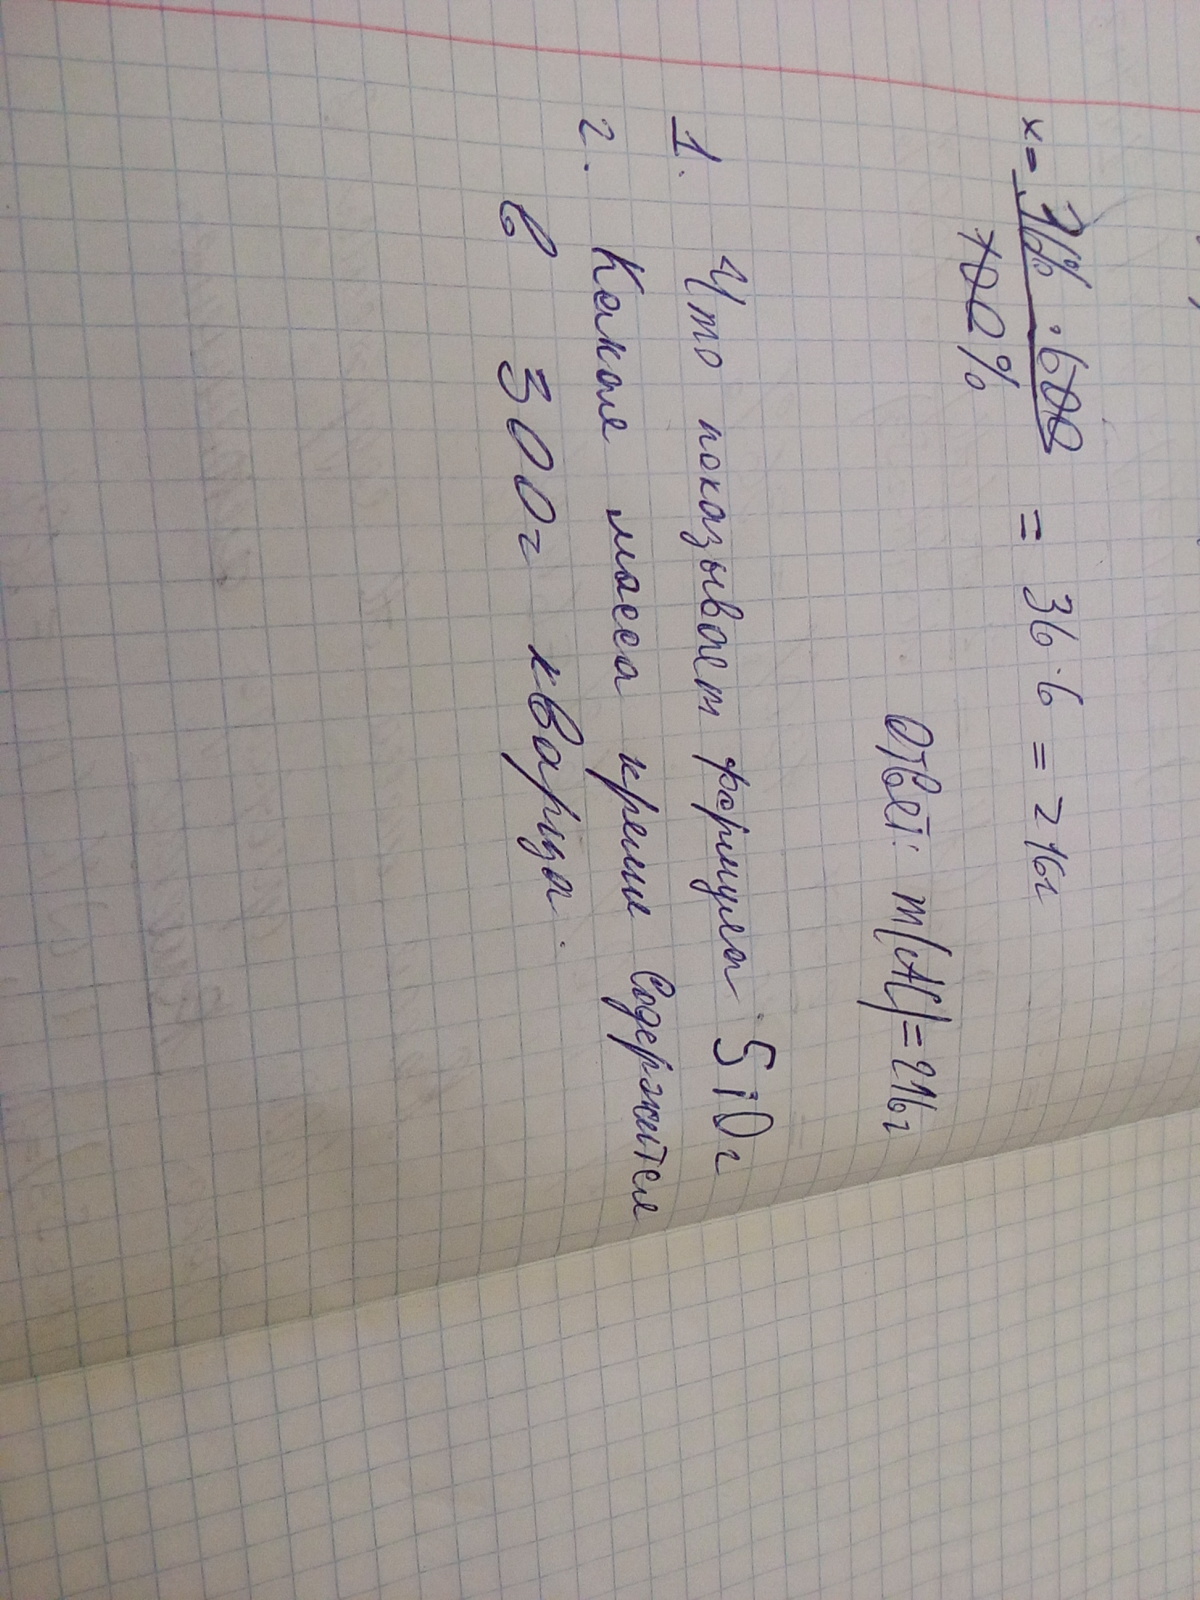 x = 36% · 600 / 100% = 36 · 6 = 216г
Ответ: m(Al) = 216г
1. Что показывает формула SiO2
2. Какая масса кремн содержится
в 300г кварца.